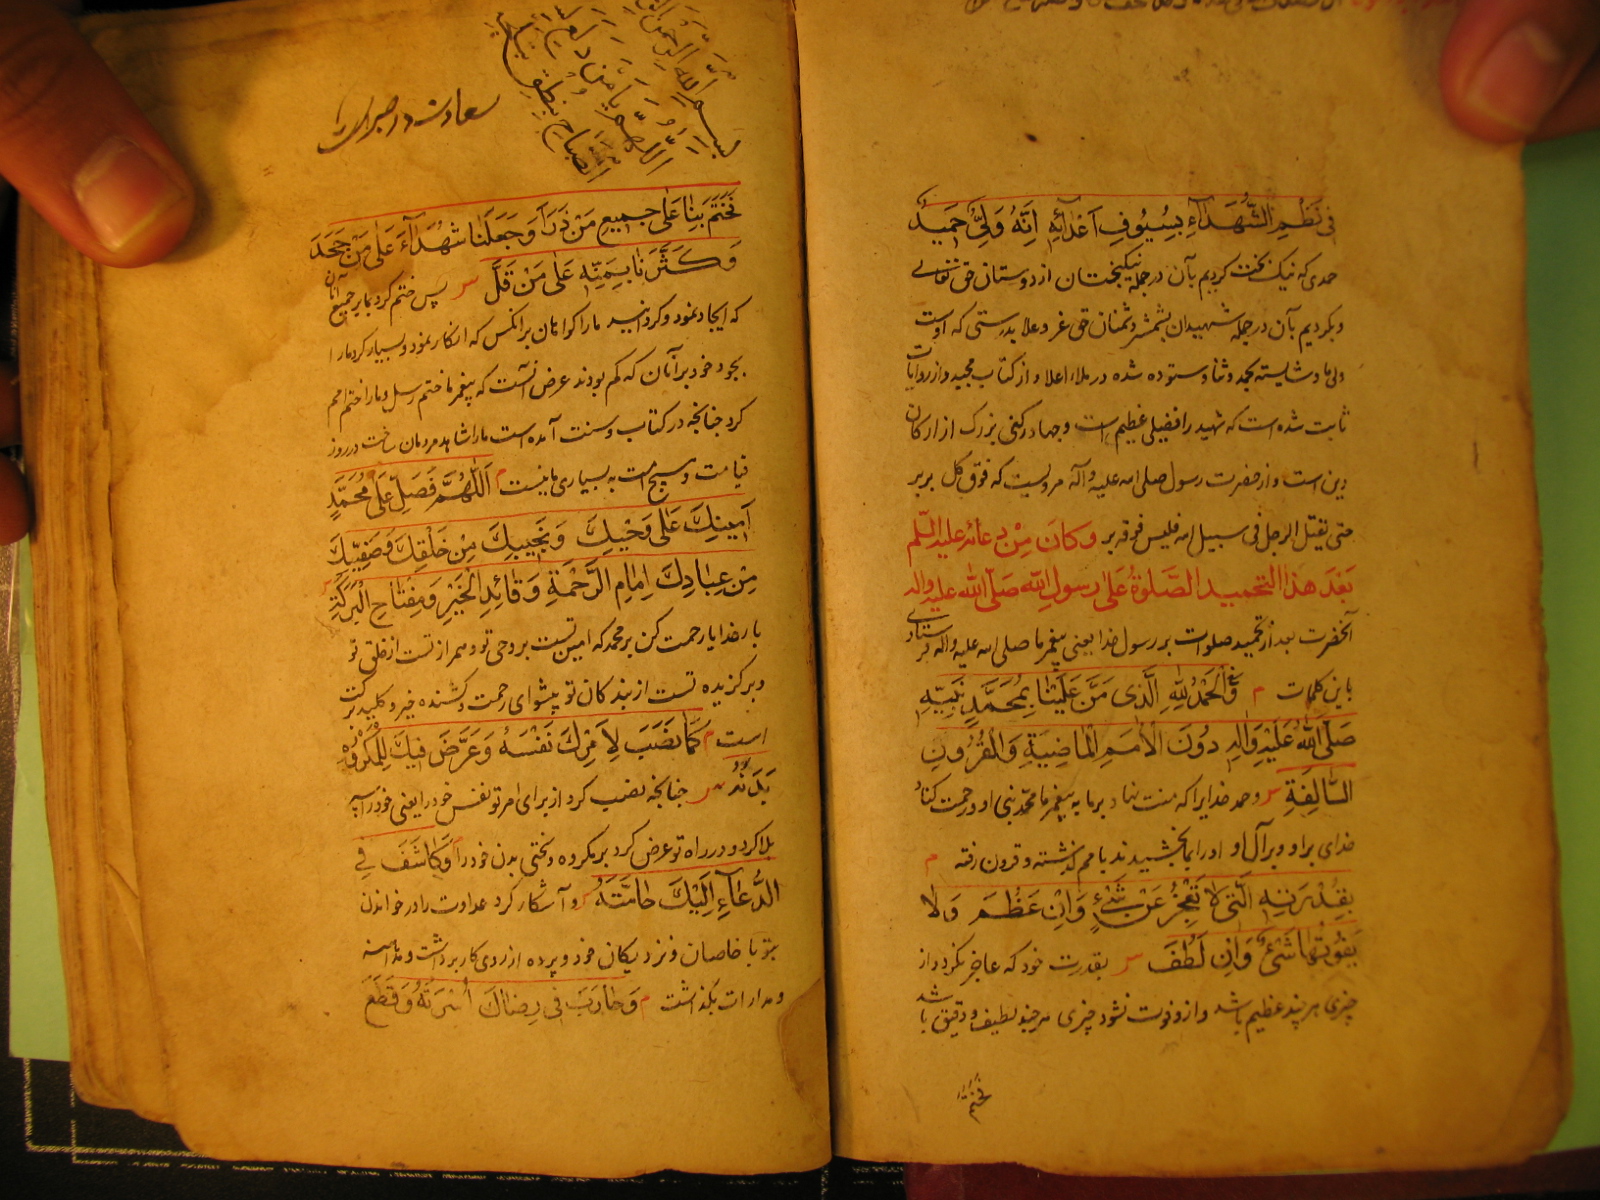 فی نَظْمِ الشُّهَدَآءِ بِسُیُوفِ اَعْدَآئِهِ اِنَّهُ وَلِیٌّ حَمِیدٌ
حمدی که نیک بخت کردیم بآن در جمله نیکبختان از دوستان حق تعالی
و بکردیم بآن در جمله شهیدان بشمشیر دشمنان حق عز و علا بدرستی که اوست
ولی ما و شایسته بحمد و ثنا و ستوده شده در ملاء اعلا و از کتاب مجید و از روایات
ثابت شده است که شهید را فضیلی عظیم است و جهاد رکنی بزرک از ارکان
دین است و از حضرت رسول صلی الله علیه و آله مرویست که فوق کل بر بر
حتی یقتل الرجل فی سبیل الله فلیس فوقه بر وَکانَ مِنْ دعائه علیه السّلم
بَعْدَ هذا التحمید الصَّلوةُ عَلی رسولِ اللّه صَلّی اللّه علیه واله
آنحضرت بعد از تحمید صلوات بر رسول خدا یعنی پیغمبر ما صلی الله علیه و آله فرستادی
باین کلمات م وَ الْحَمْدُ لِلّهِ الَّذی مَنَّ عَلَیْنا بِمُحَمَّدٍ نَبِیِّهِ
صَلَّی اللّهُ عَلَیْهِ وَالِهِ دُونَ الْاُمَمِ الْماضِیَةِ وَالْقُرُونِ
السّالِفَةِ س و حمد خدایرا که منت نهاد بر ما به پیغمبر ما محمد نبی او درحمت کناد
خدای بر او و بر آل او او را بما بخشیدند با مم کذشته و قرون رفته م
بِقُدْرَتِهِ الَّتی لا تَعْجِزُ عَنْ شَیْءٍ وَاِنْ عَظُمَ وَلا
یَفُوتُها شَیْءٌ وَاِنْ لَطُفَ س بقدرت خود که عاجز نکردد از
چیزی هر چند عظیم باشد و از و فوت نشود چیزی هر چند لطیف و دقیق باشد
فَخَتَمَ
بسم الله الرحمن
اللّهمّ یا مَن دلع
الصباح بنطق
فَخَتَمَ بِنا عَلی جمیعِ مَنْ ذَرَاَ وَجَعَلَنا شُهَدَآءَ عَلی مَنْ جَحَدَ
وَ کَثَّرَنا بِمَنِّهِ عَلی مَنْ قَلَّ س پس ختم کرد بما بر جمیع آنان
که ایجاد نمود و کردانید ما را کواهان بر انکس که انکار نمود و بسیار کرد ما را
بجود خود بر آنان که کم بودند عرض آنست که پیغمبر ما ختم رسل و ما را ختم امم
کرد چنانچه در کتاب و سنت آمده است ما را شاهد مردمان ساخت در روز
قیامت و هیچ امت به بسیاری ما نیست م اَللّهُمَّ فَصَلِّ عَلی مُحَمَّدٍ
اَمینِکَ عَلی وَحْیِکَ وَ نَجیبِکَ مِنْ خَلْقِکَ وَصَفِیِّکَ
مِنْ عِبادِکَ اِمامِ الرَّحْمَةِ وَ قائِدِ الْخَیْرِ وَ مِفْتاحِ الْبَرَکَةِ س
بار خدایا رحمت کن بر محمد که امین تست بر وحی تو و مهتر از تست از خلق تو
و برکزیده تست از بندکان تو پیشوای رحمت و کشنده خیر و کلید برکت
است م کَما نَصَبَ لِاَمْرِکَ نَفْسَهُ وَ عَرَّضَ فیکَ لِلْمَکْرُوهِ
بَدَنَهُ س چنانچه نصب کرد از برای امر تو نفس خود را یعنی خود را سپر
بلا کرد و در راه تو عرض کرد بر مکروه و سختی بدن خود را م وَ کاشَفَ فی
الدُّعآءِ اِلَیْکَ حامَّتَهُ س و آشکار کرد عداوت را در خواندن
بتو با خاصان و نزدیکان خود و پرده از روی کار برداشت و مداهنه
و مدارات بکذاشت م وَ حارَبَ فی رِضاکَ اُسْرَتَهُ وَ قَطَعَ